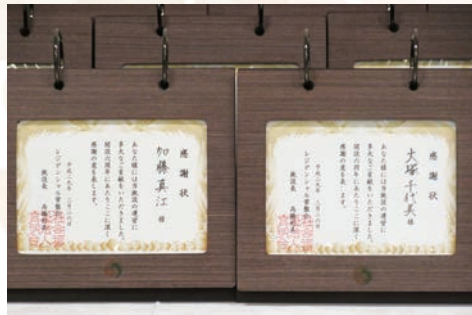 感謝状
加藤真江 様
あなた様には当施設の運営に
多大なご貢献をいただきました。
開設六周年にあたりここに深く
感謝の意を表します。
平成二九年
レジデンシャル常盤台
施設長 高橋
感謝状
大塚千代美 様
あなた様には当施設の運営に
多大なご貢献をいただきました。
開設六周年にあたりここに深く
感謝の意を表します。
平成二九年
レジデンシャル常盤台
施設長 高橋